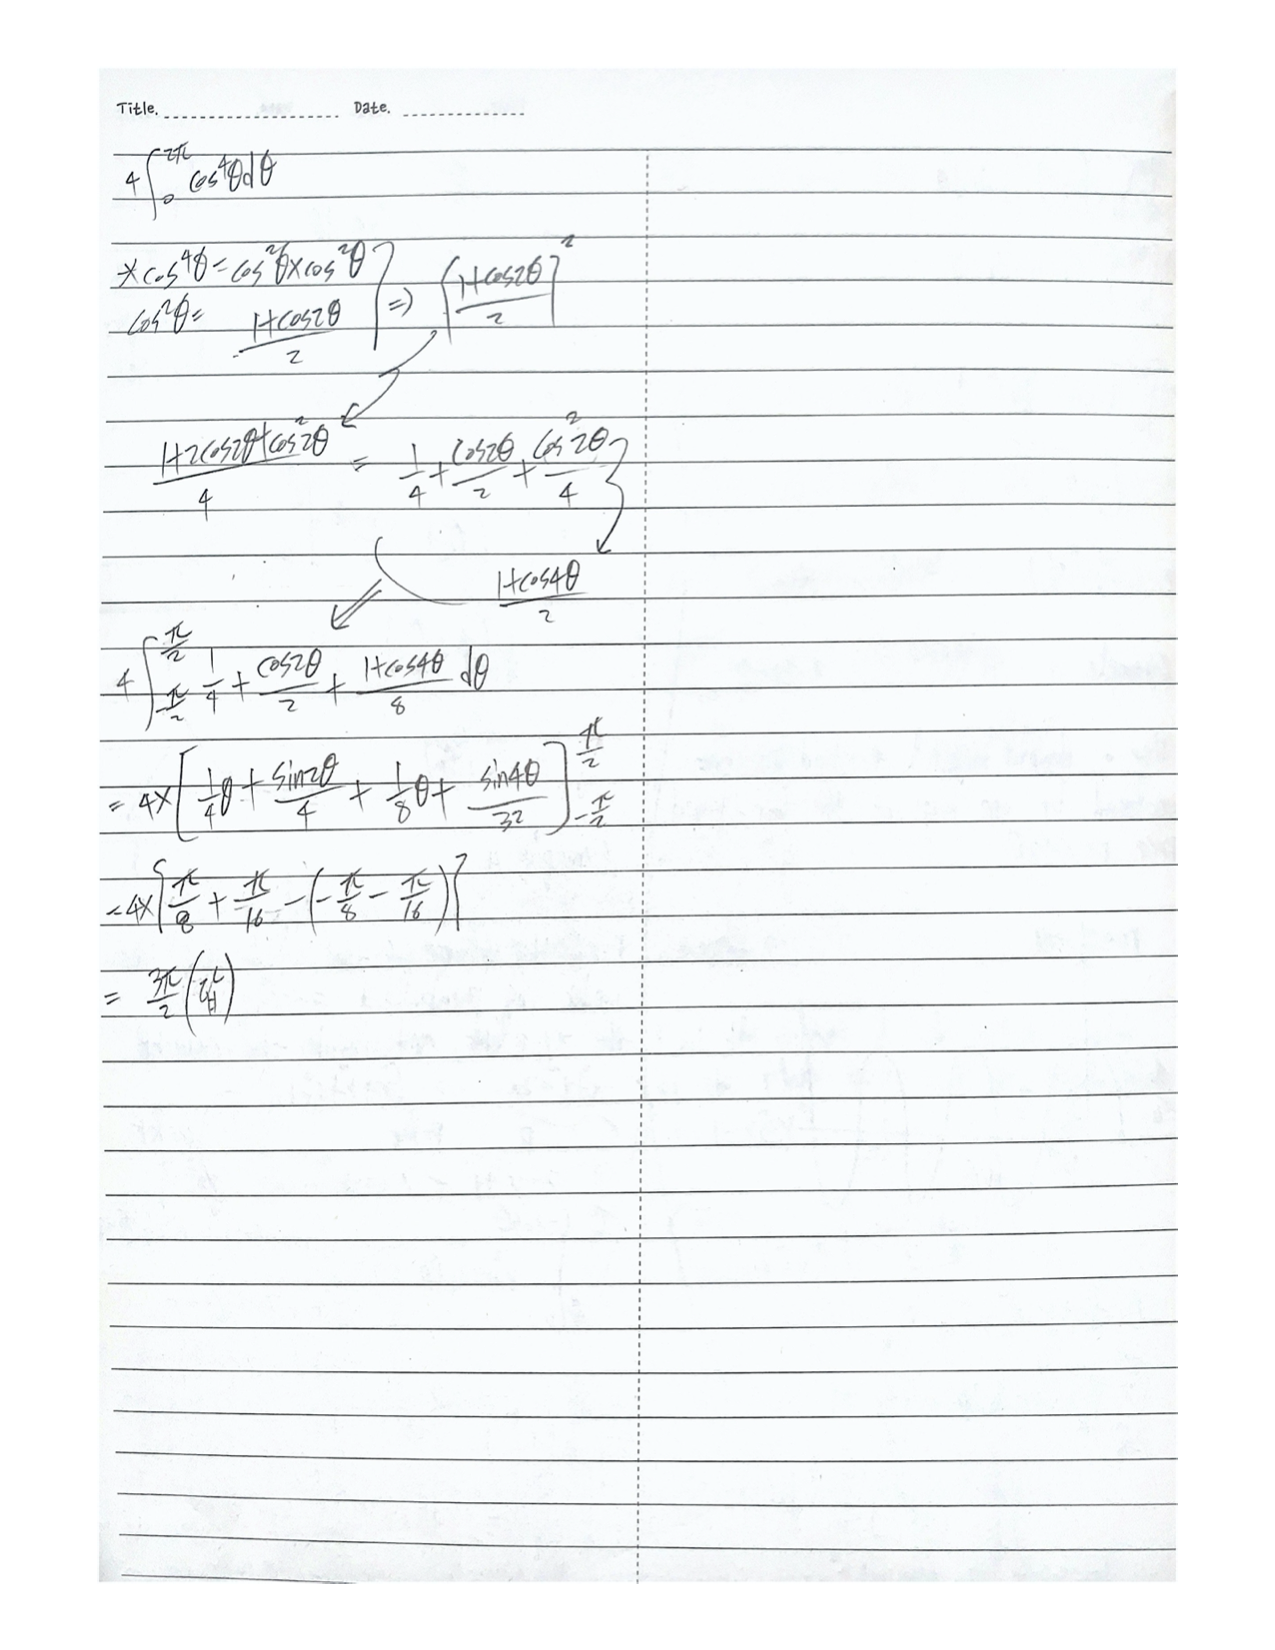 Title. Date.
4∫₀^{2π} cos⁴θdθ
*cos⁴θ=cos²θ×cos²θ
cos²θ= (1+cos2θ)/2 ⇒ [(1+cos2θ)/2]²
(1+2cos2θ+cos²2θ)/4 = 1/4 + cos2θ/2 + cos²2θ/4
(1+cos4θ)/2
4∫_{-π/2}^{π/2} 1/4 + cos2θ/2 + (1+cos4θ)/8 dθ
= 4×[1/4 θ + sin2θ/4 + 1/8 θ + sin4θ/32]_{-π/2}^{π/2}
= 4×[π/8 + π/16 - (-π/8 - π/16)]
= 3π/2